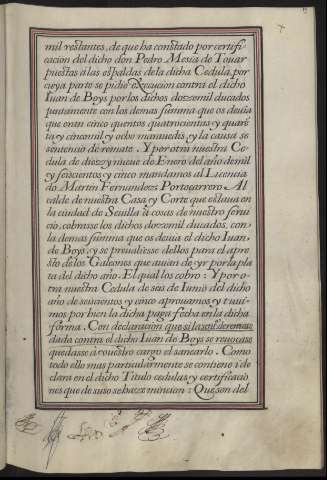 mil restantes, de que ha constado por certifi
cacion del dicho don Pedro Mesia de Touar
puestas á las espaldas de la dicha Cedula, por
cuya parte se pidio execucion contra el dicho
Iuan de Boys por los dichos dozemil ducados
juntamente con las demas summa que os deuia
que eran cinco quentos quatrocientas y quarē
ta y cincomil y ocho marauedis, y la causa se
sentencio de remate. Y por otra nuestra Ce
dula de diez y nueue de Enero del año de mil
y seiscientos y cinco mandamos al Licencia
do Martin Fernandez Portocarrero. Al
calde de nuestra Casa y Corte que estaua en
la ciudad de Seuilla à cosas de nuestro serui
cio, cobrasse los dichos dozemil ducados, con
la demas summa que os deuia el dicho Iuan
de Boys, y se proueiesse dellos para el apre
sto de los Galeones que auian de yr por la pla
ta del dicho año. El qual los cobro: Y por o
tra nuestra Cedula de seis de Iunio del dicho
año de seiscientos y cinco aprouamos y tuui
mos por bien la dicha paga fecha en la dicha
forma. Con declaracion que si la sent.ª de rema
dada contra el dicho Iuan de Boys se reuocasse
quedasse á vuestro cargo el sanearlo. Como
todo ello mas particularmente se contiene i de
clara en el dicho Titulo cedulas y certificacio
nes que de suso se haze mincion: Que son del